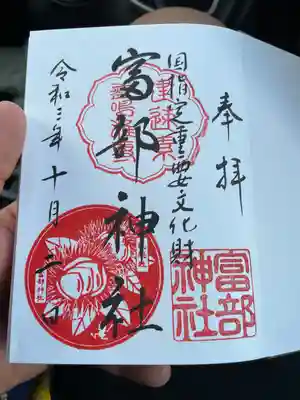 奉拝
国指定重要文化財
富部神社
令和三年十月三日
富部
神社
富部神社